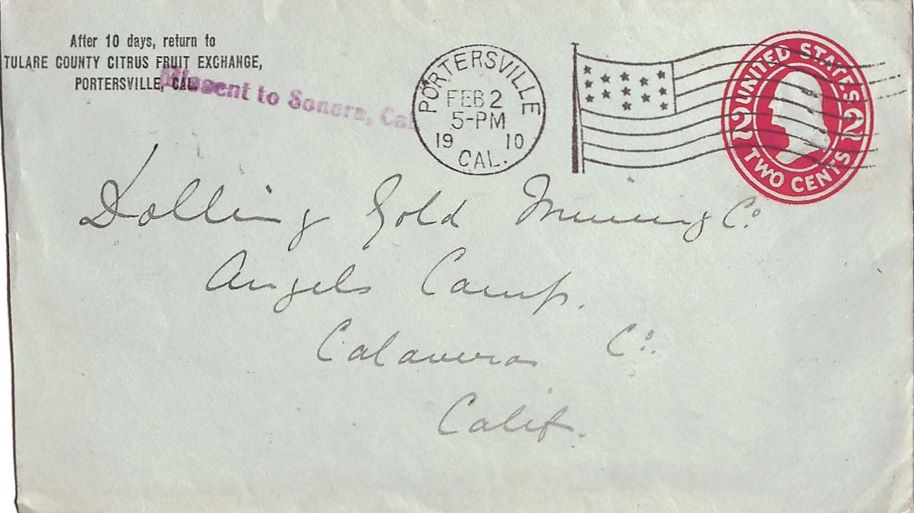 After 10 days, return to
TULARE COUNTY CITRUS FRUIT EXCHANGE,
PORTERSVILLE, CAL.
Missent to Sonora, Cal
PORTERSVILLE
FEB 2
5-PM
19 10
CAL.
UNITED STATES
2 2
TWO CENTS
Dolling Gold Mining Co.
Angels Camp.
Calaveras Co.
Calif.